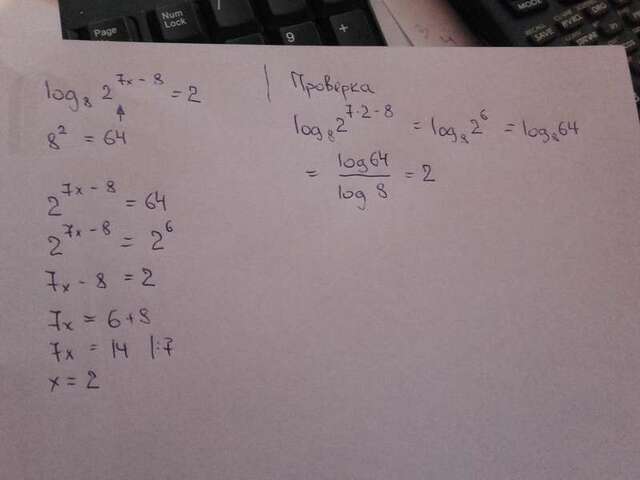 Page
Num
Lock
9
+
MODE
SAVE
log₈ 2^(7x - 8) = 2
8² = 64
2^(7x - 8) = 64
2^(7x - 8) = 2⁶
7x - 8 = 2
7x = 6 + 8
7x = 14 |:7
x = 2
Проверка
log₈ 2^(7·2 - 8) = log₈ 2⁶ = log₈ 64
= log 64 / log 8 = 2